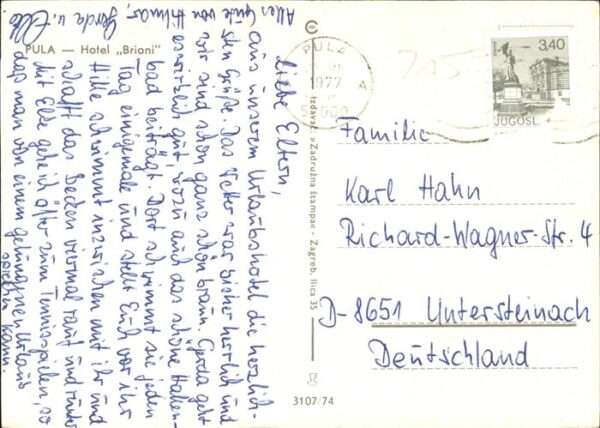 PULA — Hotel „Brioni"
Liebe Eltern,
aus unserem Urlaubshotel die herzlich-
sten Grüße. Das Wetter war bisher herrlich und
wir sind schon ganz schön braun. Gerda geht
es wirklich gut, wozu auch das schöne Hallen-
bad beiträgt. Dort schwimmt sie jeden
Tag einigemale und stellt Euch vor ihr
Hilke schwimmt inzwischen mit ihr und
schafft das Becken viermal rauf und runter
Mit Elke gehe ich öfter zum Tennisspielen, so
daß man von einem gelungenen Urlaub
sprechen kann.
Alles Gute von Hilmar, Gerda u. Elke
Izdavač: »Zadružna štampa« - Zagreb, Ilica 35
3107/74
PULA
1977
A
3,40
JUGOSL
Familie
Karl Hahn
Richard-Wagner-Str. 4
D-8651 Untersteinach
Deutschland